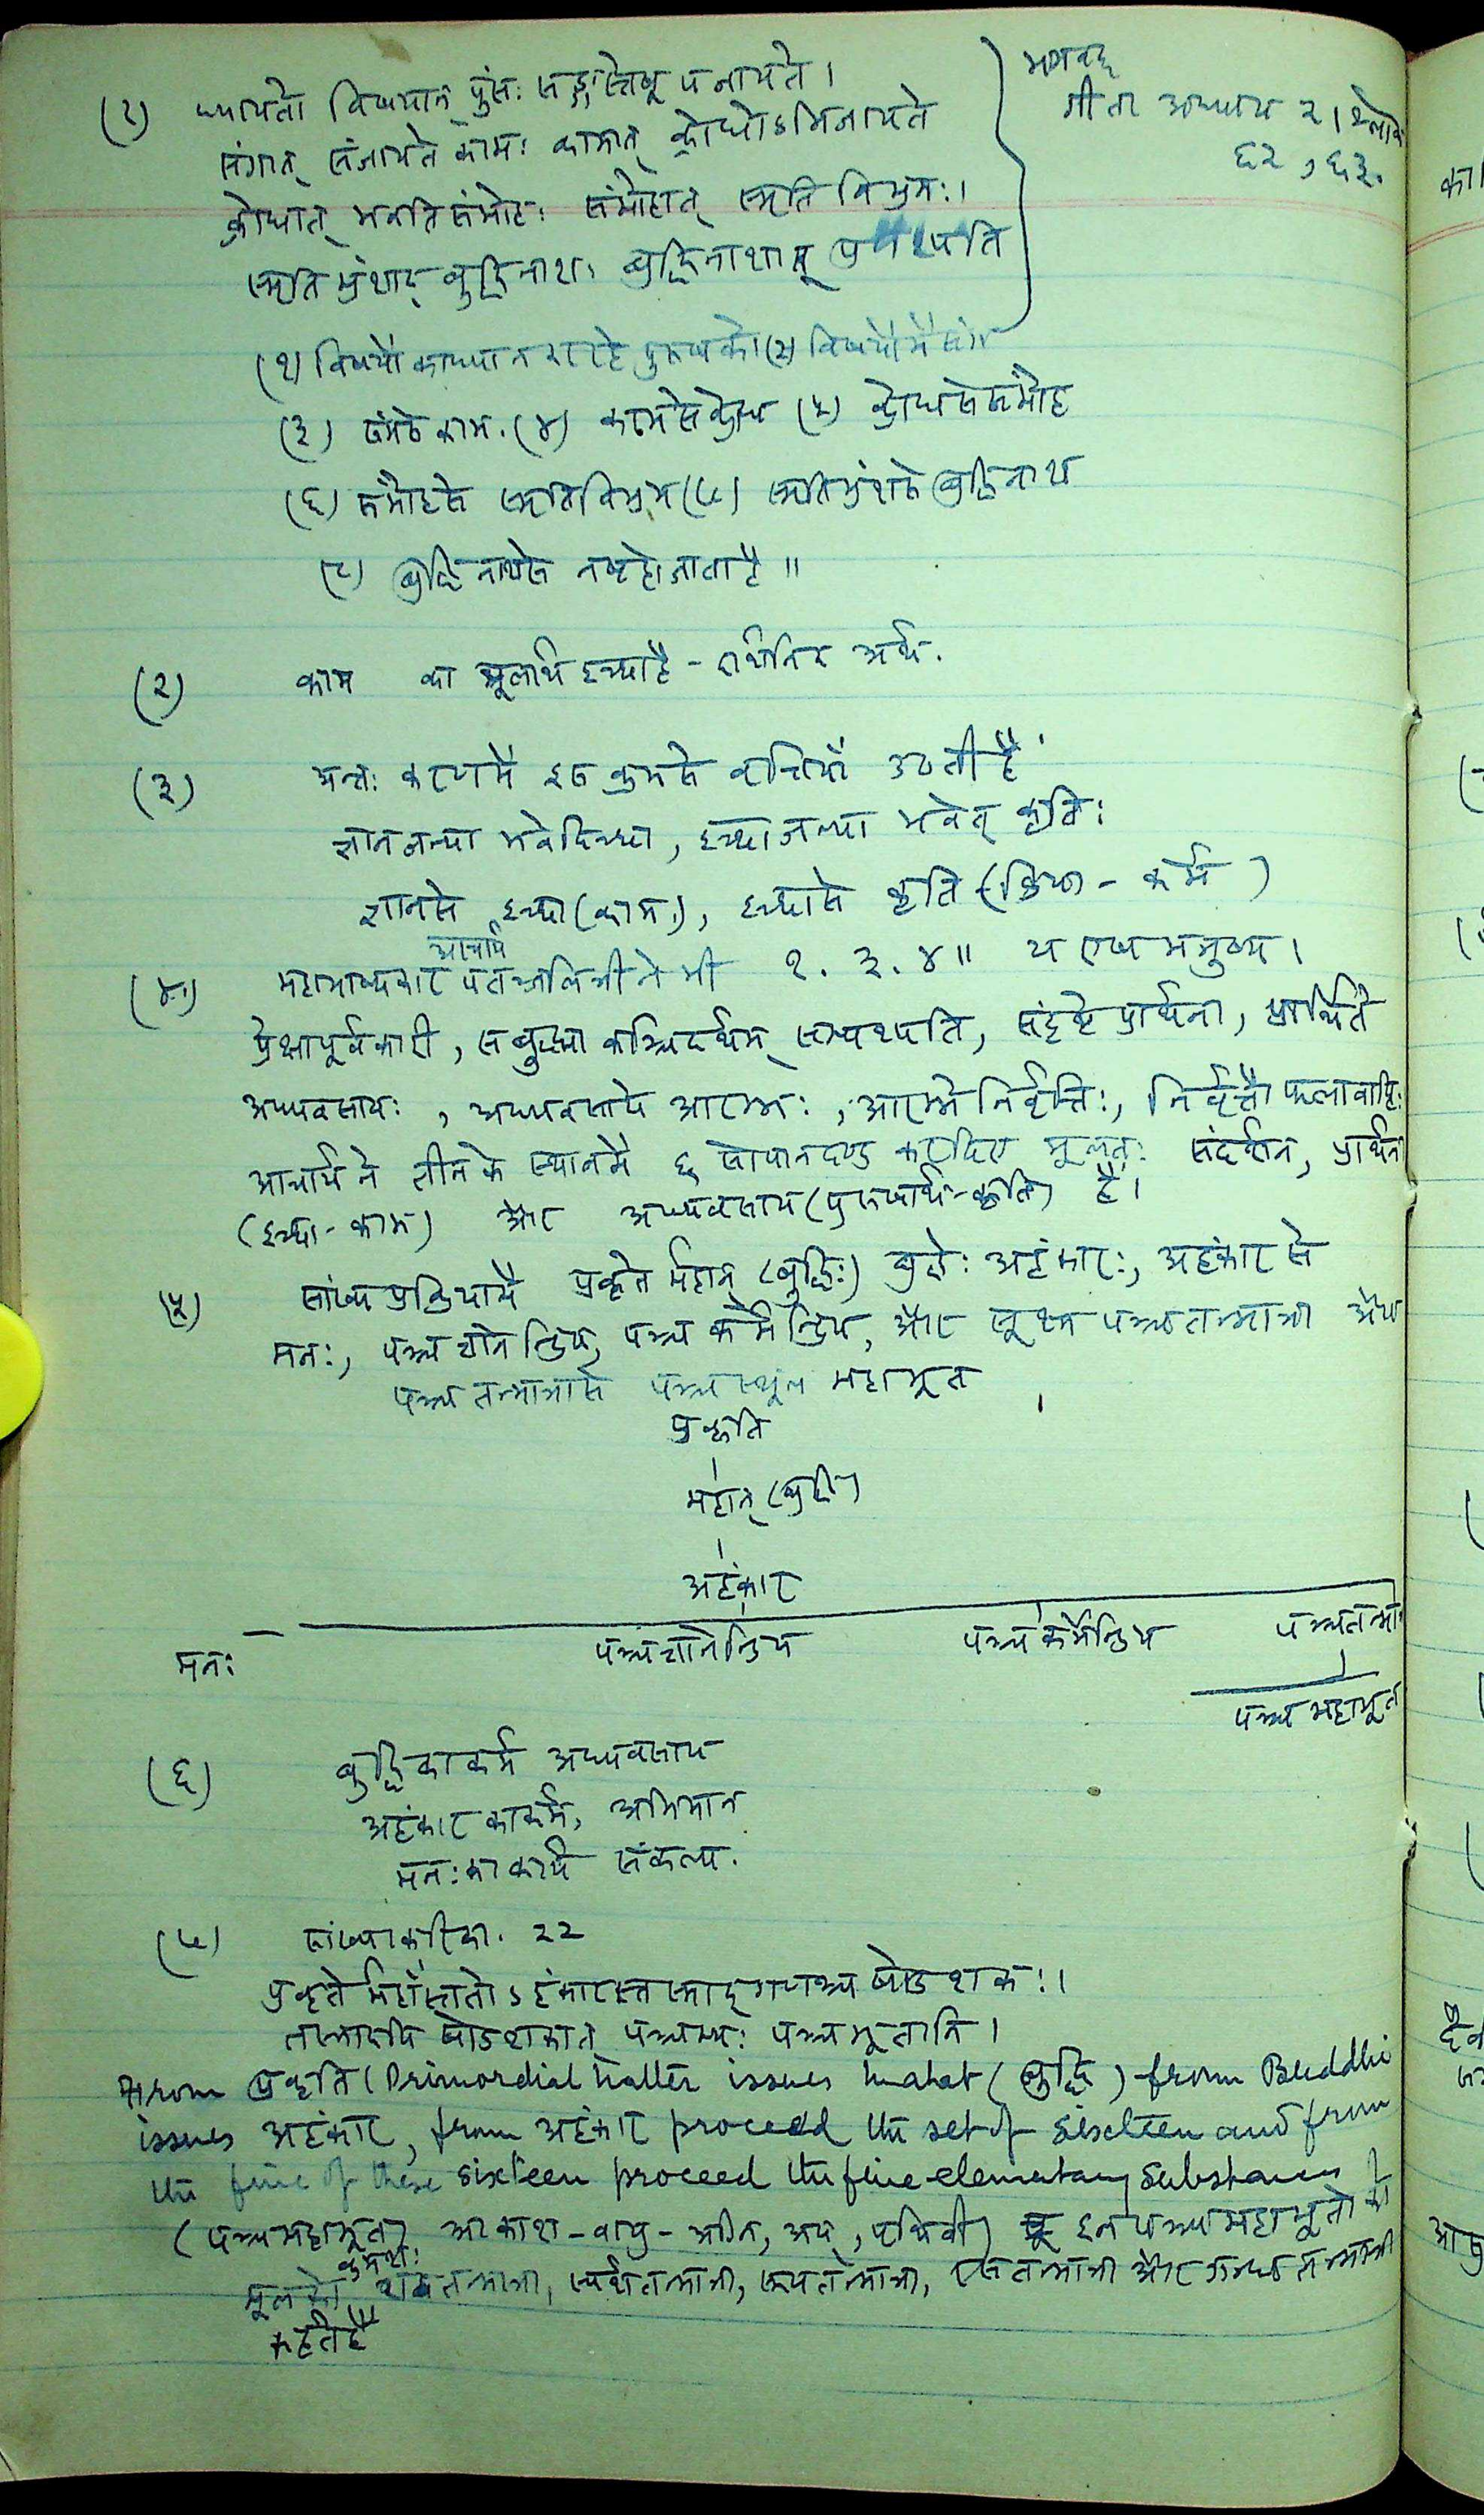 (१) ध्यायतो विषयान् पुंसः सङ्गस्तेषूपजायते ।
संगात् संजायते कामः कामात् क्रोधोऽभिजायते
क्रोधात् भवति संमोहः संमोहात् स्मृति विभ्रमः ।
स्मृति भ्रंशाद् बुद्धिनाशः बुद्धिनाशात् प्रणश्यति
भगवद्
गीता अध्याय २ । श्लोक
६२ , ६३.
(१) विषयों का ध्यान करते पुरुष को (२) विषयों में संग
(३) संगसे काम. (४) कामसे क्रोध (५) क्रोधसे संमोह
(६) संमोहसे स्मृतिविभ्रम (७) स्मृतिभ्रंशसे बुद्धिनाश
(८) बुद्धिनाशसे नष्ट हो जाता है ॥
(२) काम का मूलार्थ इच्छा है - दार्शनिक अर्थ.
(३) अन्तः करणमें इस क्रमसे वृत्तियाँ उठती हैं
ज्ञानजन्या भवेदिच्छा, इच्छाजन्या भवेत् कृतिः
ज्ञानसे इच्छा (काम), इच्छासे कृति (क्रिया - कर्म)
आचार्य
(४) महाभाष्यकार पतञ्जलिजी ने भी १. ३. ४ ॥ य एष मनुष्य ।
प्रेक्षापूर्वकारी, स बुद्ध्या कञ्चिदर्थम् सम्पश्यति, संदृष्टे प्रार्थना, प्रार्थिते
अध्यवसायः , अध्यवसाये आरम्भः , आरम्भे निर्वृत्तिः, निर्वृत्तौ फलावाप्तिः
आचार्य ने तीन के स्थानमें ६ सोपानदण्ड कर दिए मूलतः संदर्शन, प्रार्थना
(इच्छा - काम) और अध्यवसाय (पुरुषार्थ - कृति) हैं ।
(५) सांख्य प्रक्रियामें प्रकृतेर्महान् (बुद्धिः) बुद्धेः अहंकारः, अहंकार से
मनः, पञ्च ज्ञानेन्द्रिय, पञ्च कर्मेन्द्रिय, और सूक्ष्म पञ्चतन्मात्रा और
पञ्च तन्मात्रासे पञ्च स्थूल महाभूत ।
प्रकृति
महान् (बुद्धि)
अहंकार
मनः पञ्चज्ञानेन्द्रिय पञ्च कर्मेन्द्रिय पञ्चतन्मा
पञ्च महाभूत
(६) बुद्धि का कर्म अध्यवसाय
अहंकार का कर्म, अभिमान
मनः का कार्य संकल्प.
(७) सांख्यकारिका. २२
प्रकृतेर्महाँस्ततोऽहंकारस्तस्माद् गणश्च षोडशकः ।
तस्मादपि षोडशकात् पञ्चभ्यः पञ्च भूतानि ।
From प्रकृति (Primordial Matter issues Mahat (बुद्धि) from Buddhi
issues अहंकार, from अहंकार proceed the set of sixteen and from
the five of these sixteen proceed the five elementary substances
(पञ्चमहाभूत) आकाश - वायु - अग्नि, अप्, पृथिवी) इन पञ्चमहाभूतों का
क्रमशः
मूल शब्दतन्मात्रा, स्पर्शतन्मात्रा, रूपतन्मात्रा, रसतन्मात्रा और गन्धतन्मात्रा
कहते हैं